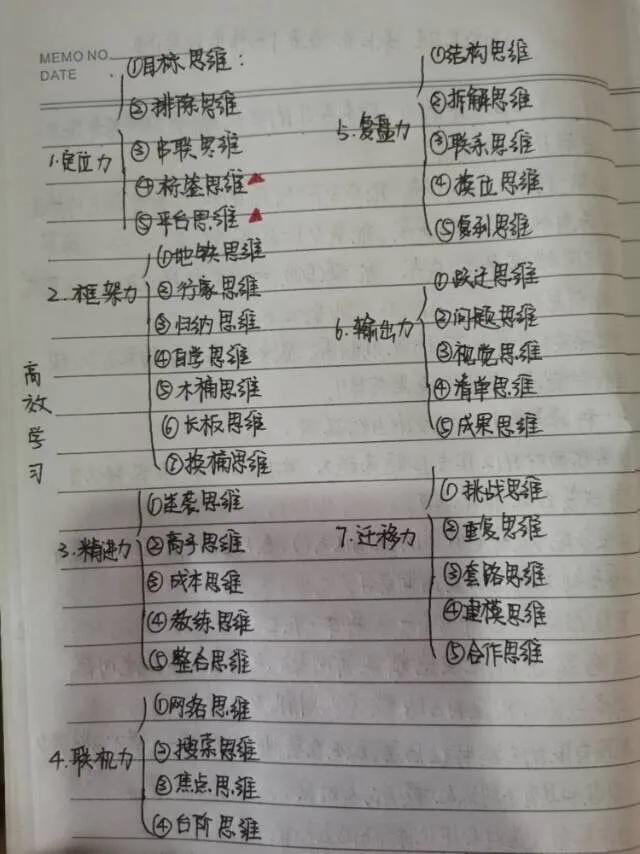 MEMO NO.
DATE
高效学习
1.定位力
①目标思维:
②排除思维
③串联思维
④标签思维
⑤平台思维
2.框架力
①地铁思维
②行家思维
③归纳思维
④自学思维
⑤木桶思维
⑥长板思维
⑦换桶思维
3.精进力
①逆袭思维
②高手思维
③成本思维
④教练思维
⑤整合思维
4.联机力
①网络思维
②搜索思维
③焦点思维
④台阶思维
5.复盘力
①结构思维
②拆解思维
③联系思维
④换位思维
⑤复利思维
6.输出力
①跃迁思维
②问题思维
③视觉思维
④清单思维
⑤成果思维
7.迁移力
①挑战思维
②重复思维
③套路思维
④建模思维
⑤合作思维